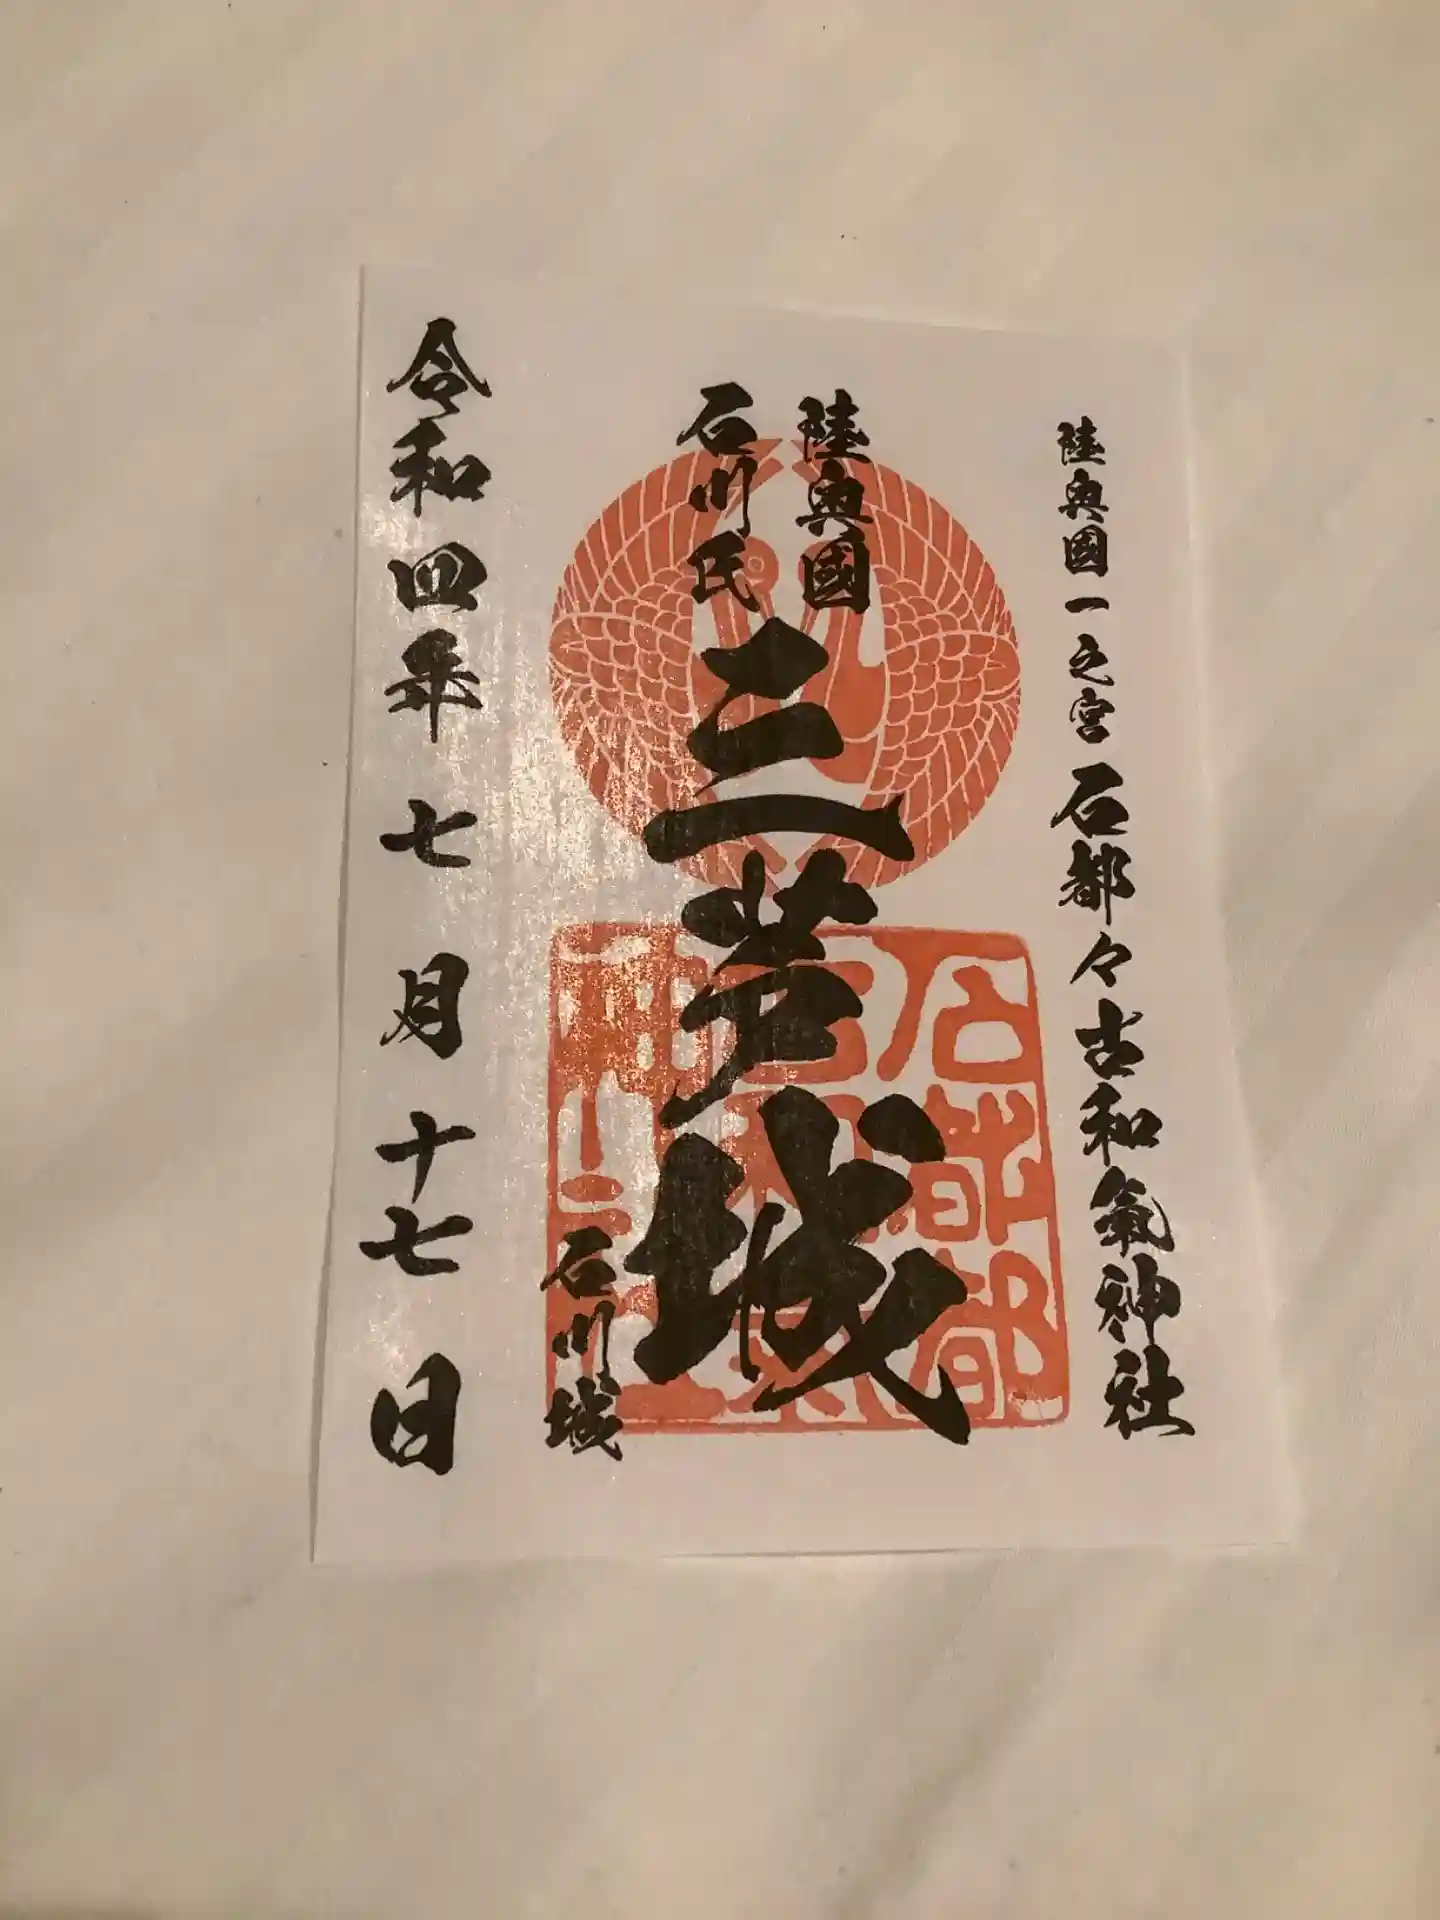 陸奥國一之宮 石都々古和氣神社
陸奥國
石川氏
三芦城
石川城
令和四年七月十七日